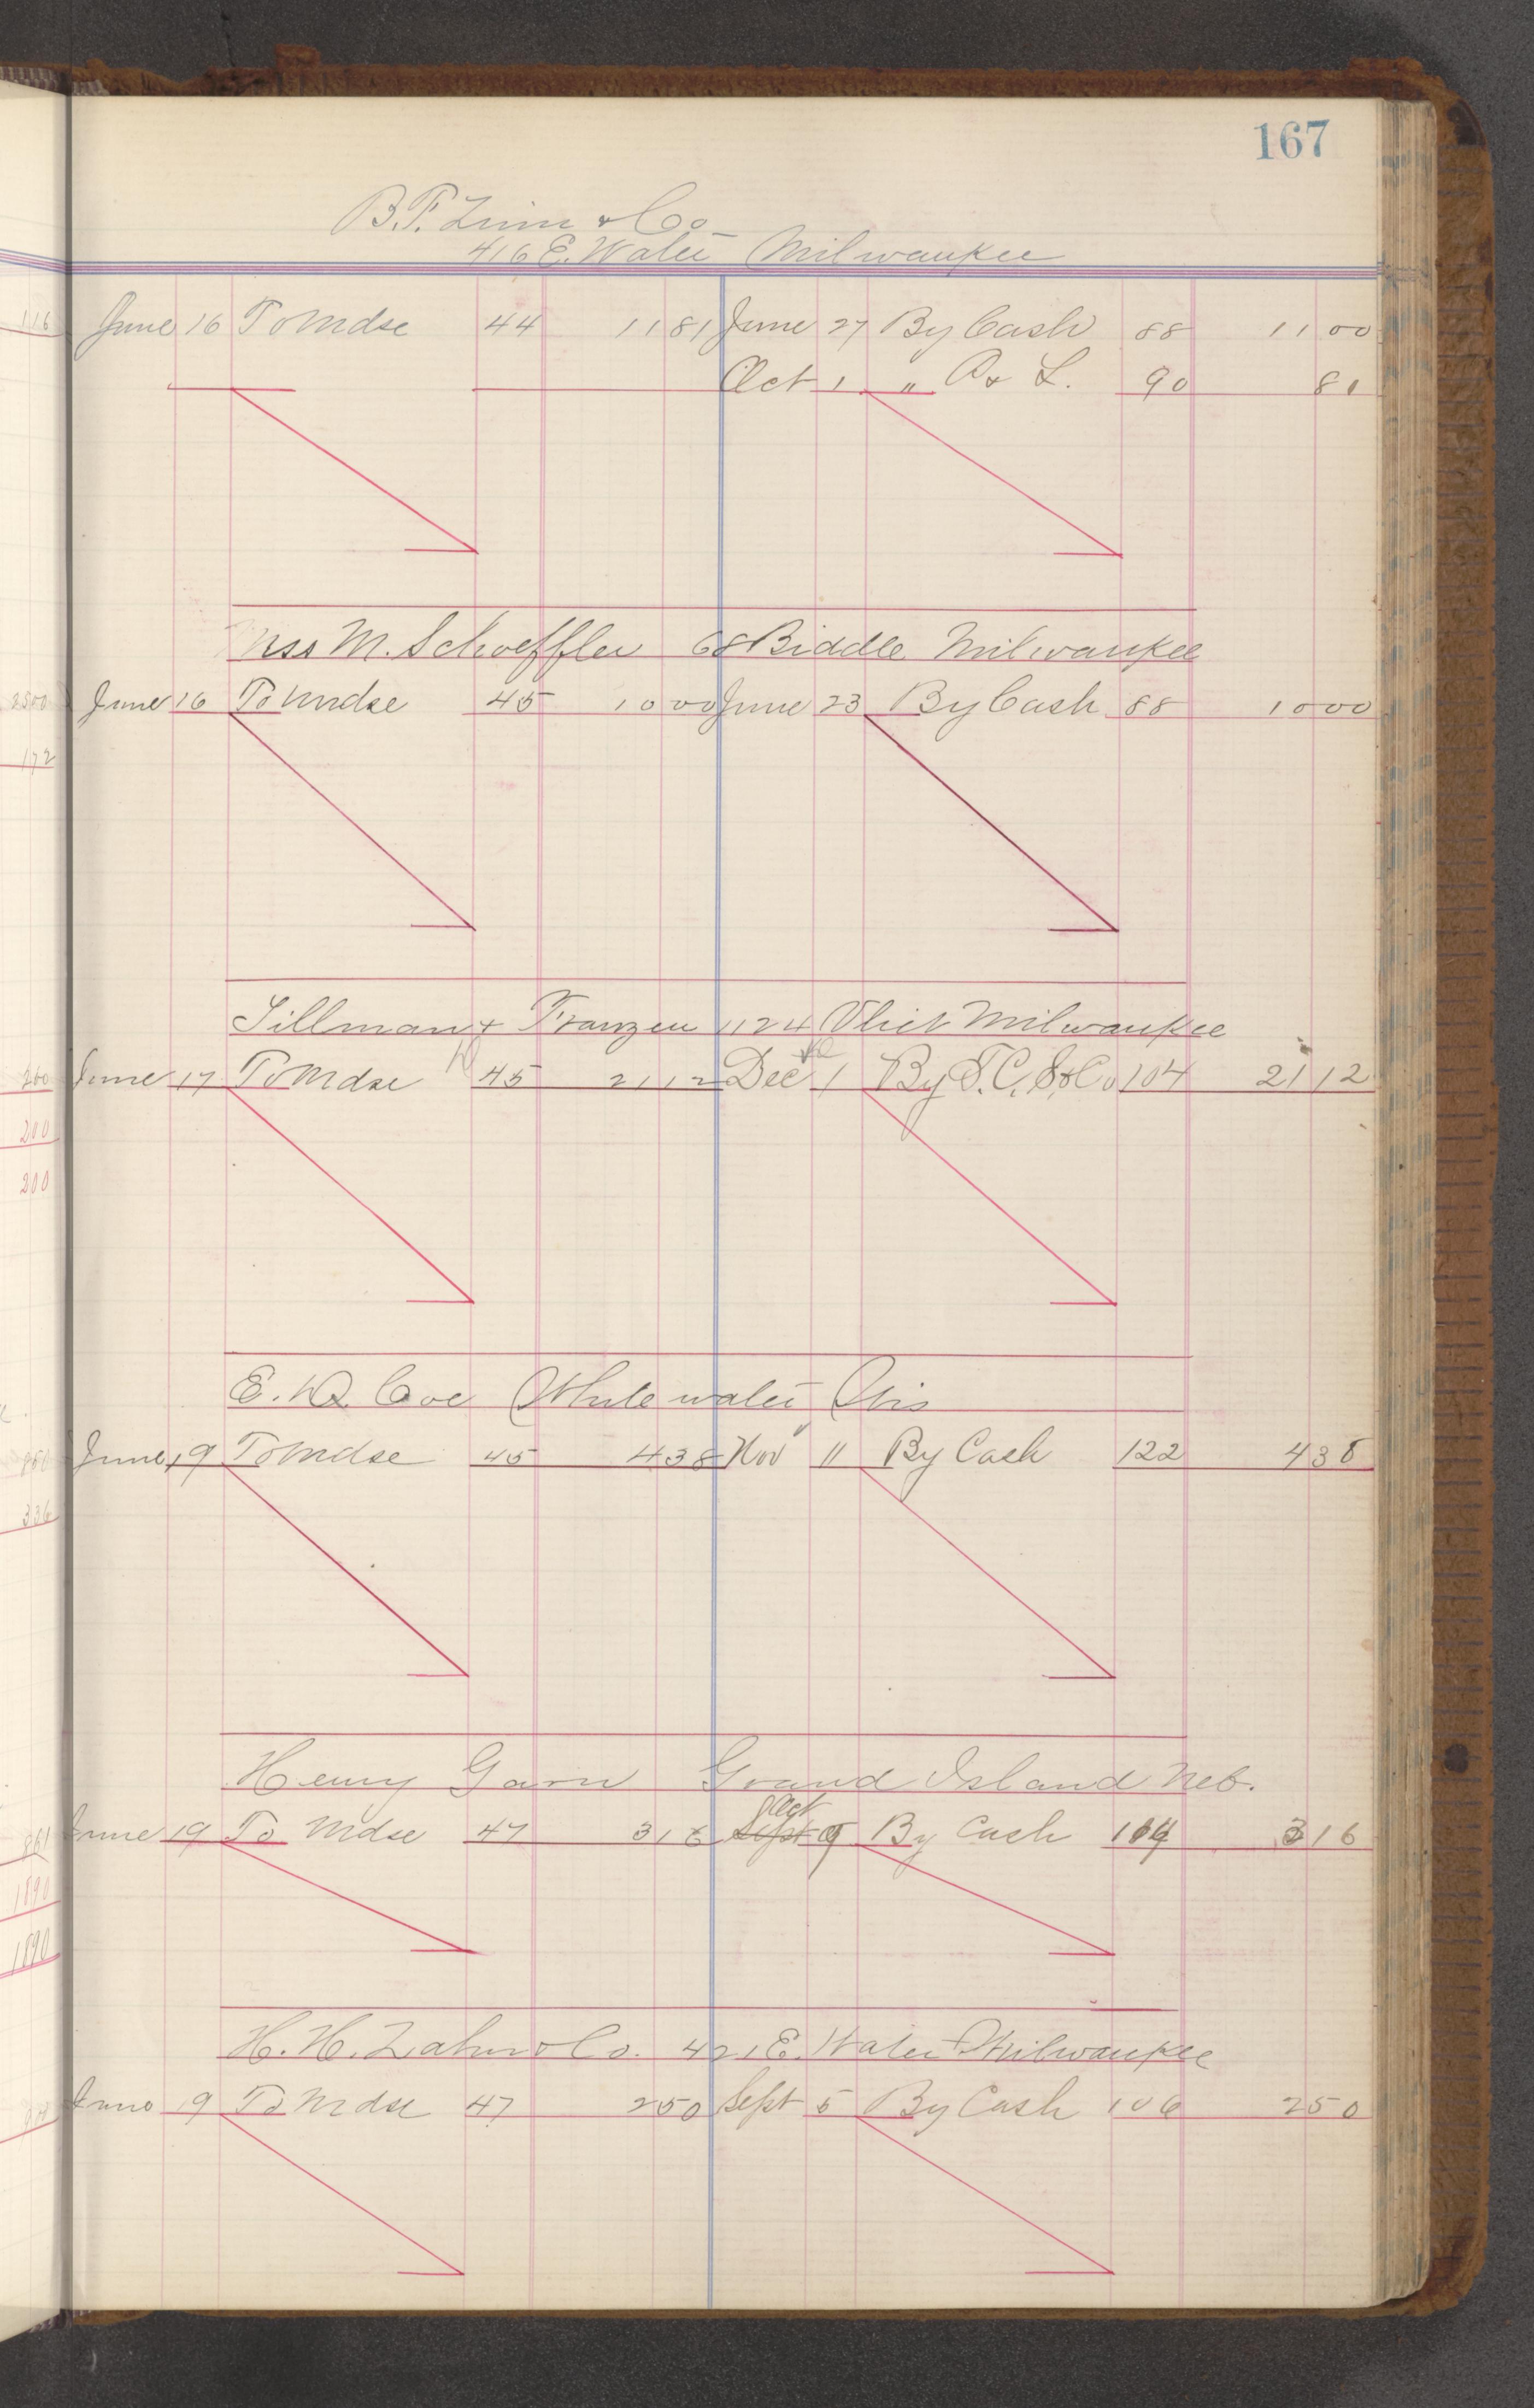 167
B.F. Zinn & Co
416 E. Water Milwaukee
116
June 16 To Mdse 44 11 81 June 27 By Cash 88 11 00
Oct 1 " P & L. 90 81
Miss M. Schoeffler 68 Biddle Milwaukee
2500 June 16 To Mdse 45 10 00 June 23 By Cash 88 10 00
172
Tillman & Franzen 1124 Vliet Milwaukee
260 June 17 To Mdse 45 21 12 Dec 1 By S.C.S. & Co 104 21 12
200
200
E. D. Coe Whitewater Wis
850 June 19 To Mdse 45 4 38 Nov 11 By Cash 122 4 38
336
Henry Garn Grand Island Neb.
Oct
861 June 19 To Mdse 47 3 16 Sept 9 By Cash 114 3 16
1890
1890
H. H. Zahn & Co. 421 E. Water Milwaukee
June 19 To Mdse 47 2 50 Sept 5 By Cash 106 2 50